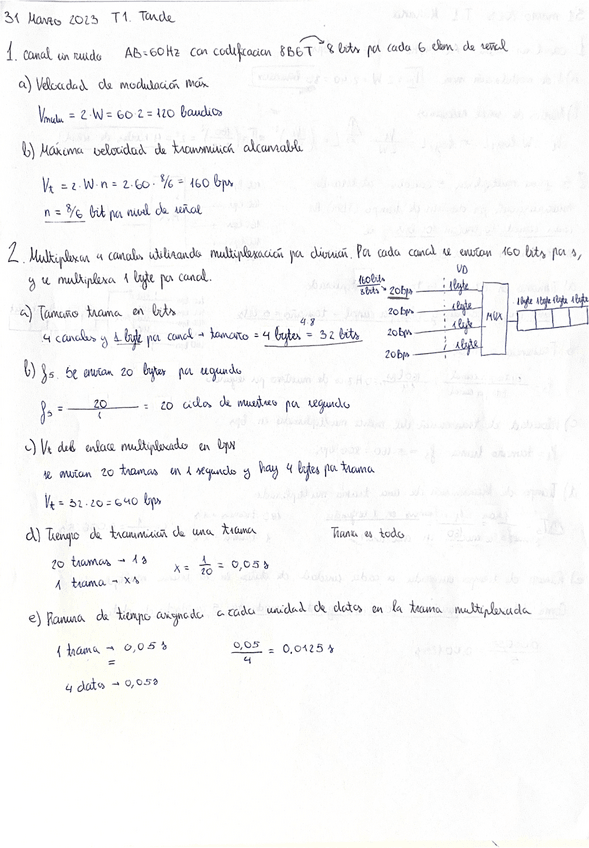 31 Marzo 2023 T1. Tarde
1. Canal sin ruido AB=60Hz con codificacion 8B6T 8 bits por cada 6 elem. de señal
a) Velocidad de modulación máx
Vmodu = 2·W = 60·2 = 120 baudios
b) Máxima velocidad de transmisión alcanzable
Vt = 2·W·n = 2·60·8/6 = 160 bps
n = 8/6 bit por nivel de señal
2. Multiplexar 4 canales utilizando multiplexación por división. Por cada canal se envían 160 bits por s,
y se multiplexa 1 byte por canal.
160bits
8bits
20bps
20bps
20bps
20bps
UD
1byte
1byte
1byte
1byte
MUX
1byte 1byte 1byte 1byte
a) Tamaño trama en bits
4 canales y 1 byte por canal → tamaño = 4 bytes = 32 bits
4·8
b) fs. Se envían 20 bytes por segundo
fs = 20/1 = 20 ciclos de muestreo por segundo
c) Vt del enlace multiplexado en bps
se envían 20 tramas en 1 segundo y hay 4 bytes por trama
Vt = 32·20 = 640 bps
d) Tiempo de transmisión de una trama Trama es todo
20 tramas → 1s
1 trama → xs
x = 1/20 = 0,05s
e) Ranura de tiempo asignada a cada unidad de datos en la trama multiplexada
1 trama → 0,05s
=
4 datos → 0,05s
0,05/4 = 0.0125s